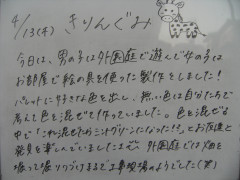 4/13(木) きりんぐみ
今日は、男の子は外園庭で遊んで女の子は
お部屋で絵の具を使った製作をしました!
パレットに好きな色を出し、無い色は自分たちで
考えて色を混ぜて作っていました。色を混ぜる
中で「これ混ぜたらミントグリーンになった!!」とお友達と
発見を楽しんでいましたよ。外園庭では畑を
掘って掘りつづけまるで工事現場のようでした(笑)